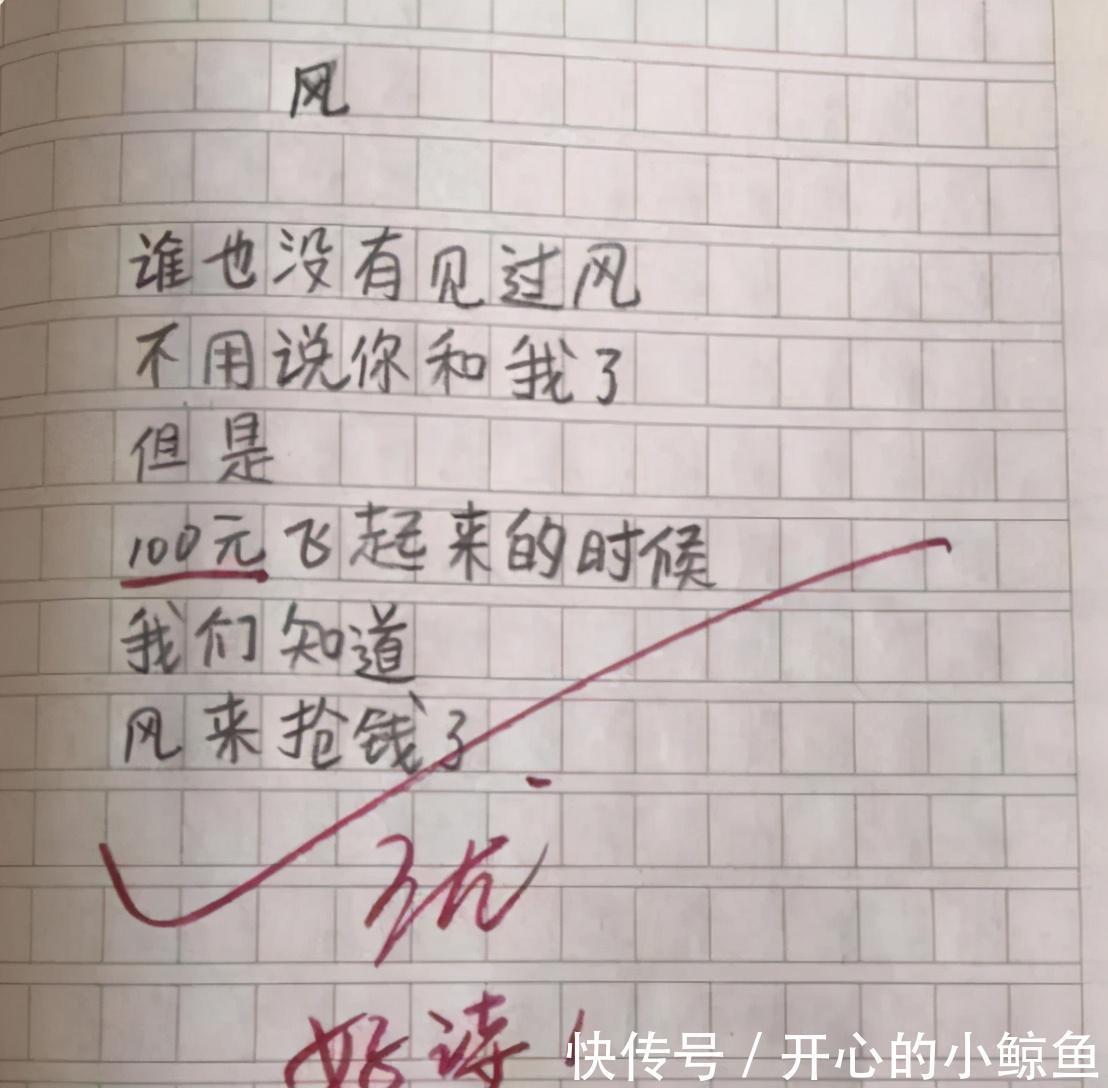 风
谁也没有见过风
不用说你和我了
但是
100元飞起来的时候
我们知道
风来抢钱了
优
好诗！
快传号 / 开心的小鲸鱼